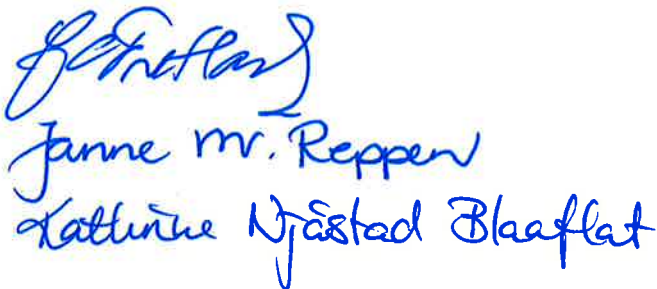 Janne M. Reppen
Kathrine Njåstad Blaaflat